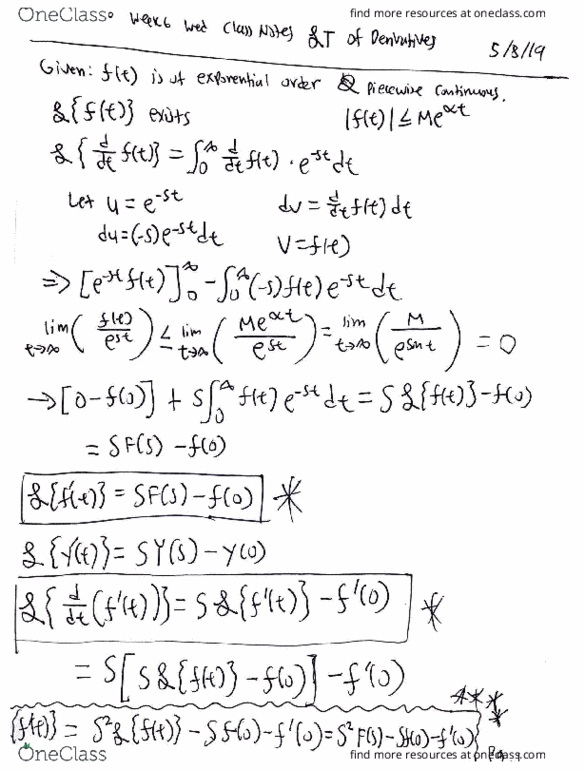 OneClass
find more resources at oneclass.com
Week 6 Wed Class Notes ℒT of Derivatives 5/8/19
Given: f(t) is of exponential order & Piecewise Continuous.
ℒ{f(t)} exists |f(t)| ≤ Me^αt
ℒ{d/dt f(t)} = ∫₀^∞ d/dt f(t) · e^-st dt
Let u = e^-st dv = d/dt f(t) dt
du = (-s)e^-st dt V = f(t)
=> [e^-st f(t)]₀^∞ - ∫₀^∞ (-s) f(t) e^-st dt
lim t→∞ (f(t)/e^st) ≤ lim t→∞ (Me^αt/e^st) = lim t→∞ (M/e^snt) = 0
→ [0 - f(0)] + S∫₀^∞ f(t) e^-st dt = S ℒ{f(t)} - f(0)
= SF(S) - f(0)
ℒ{f'(t)} = SF(S) - f(0) *
ℒ{y'(t)} = SY(S) - Y(0)
ℒ{d/dt (f'(t))} = S ℒ{f'(t)} - f'(0) *
= S[S ℒ{f(t)} - f(0)] - f'(0)
****
{f''(t)} = S²ℒ{f(t)} - Sf(0) - f'(0) = S²F(S) - Sf(0) - f'(0)
OneClass
find more resources at oneclass.com